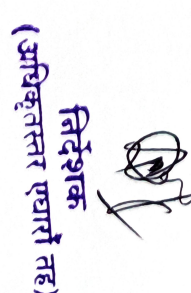 निर्देशक
(अधिकृतस्तर एघारौं तह)